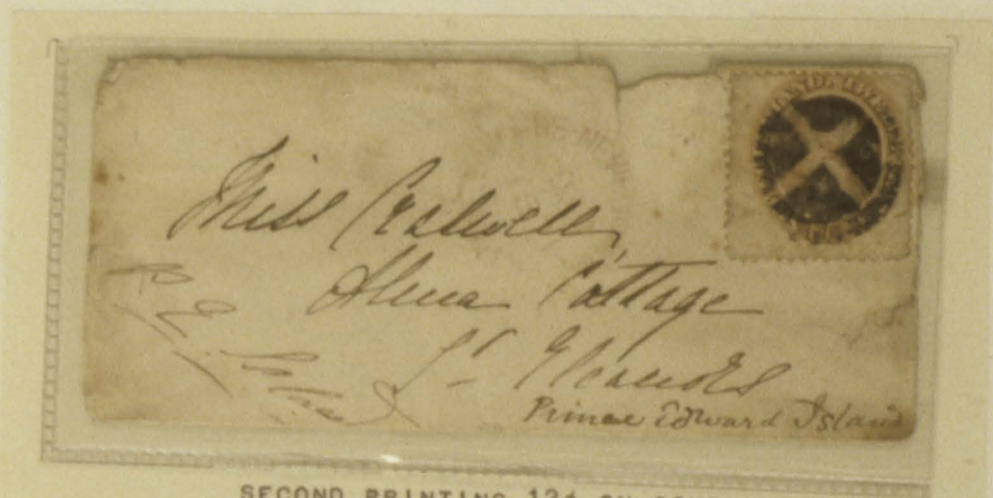 Miss Calwell
Alma Cottage
St Eleanors
Prince Edward Island
P. E. Island
SECOND PRINTING 12¢ ON